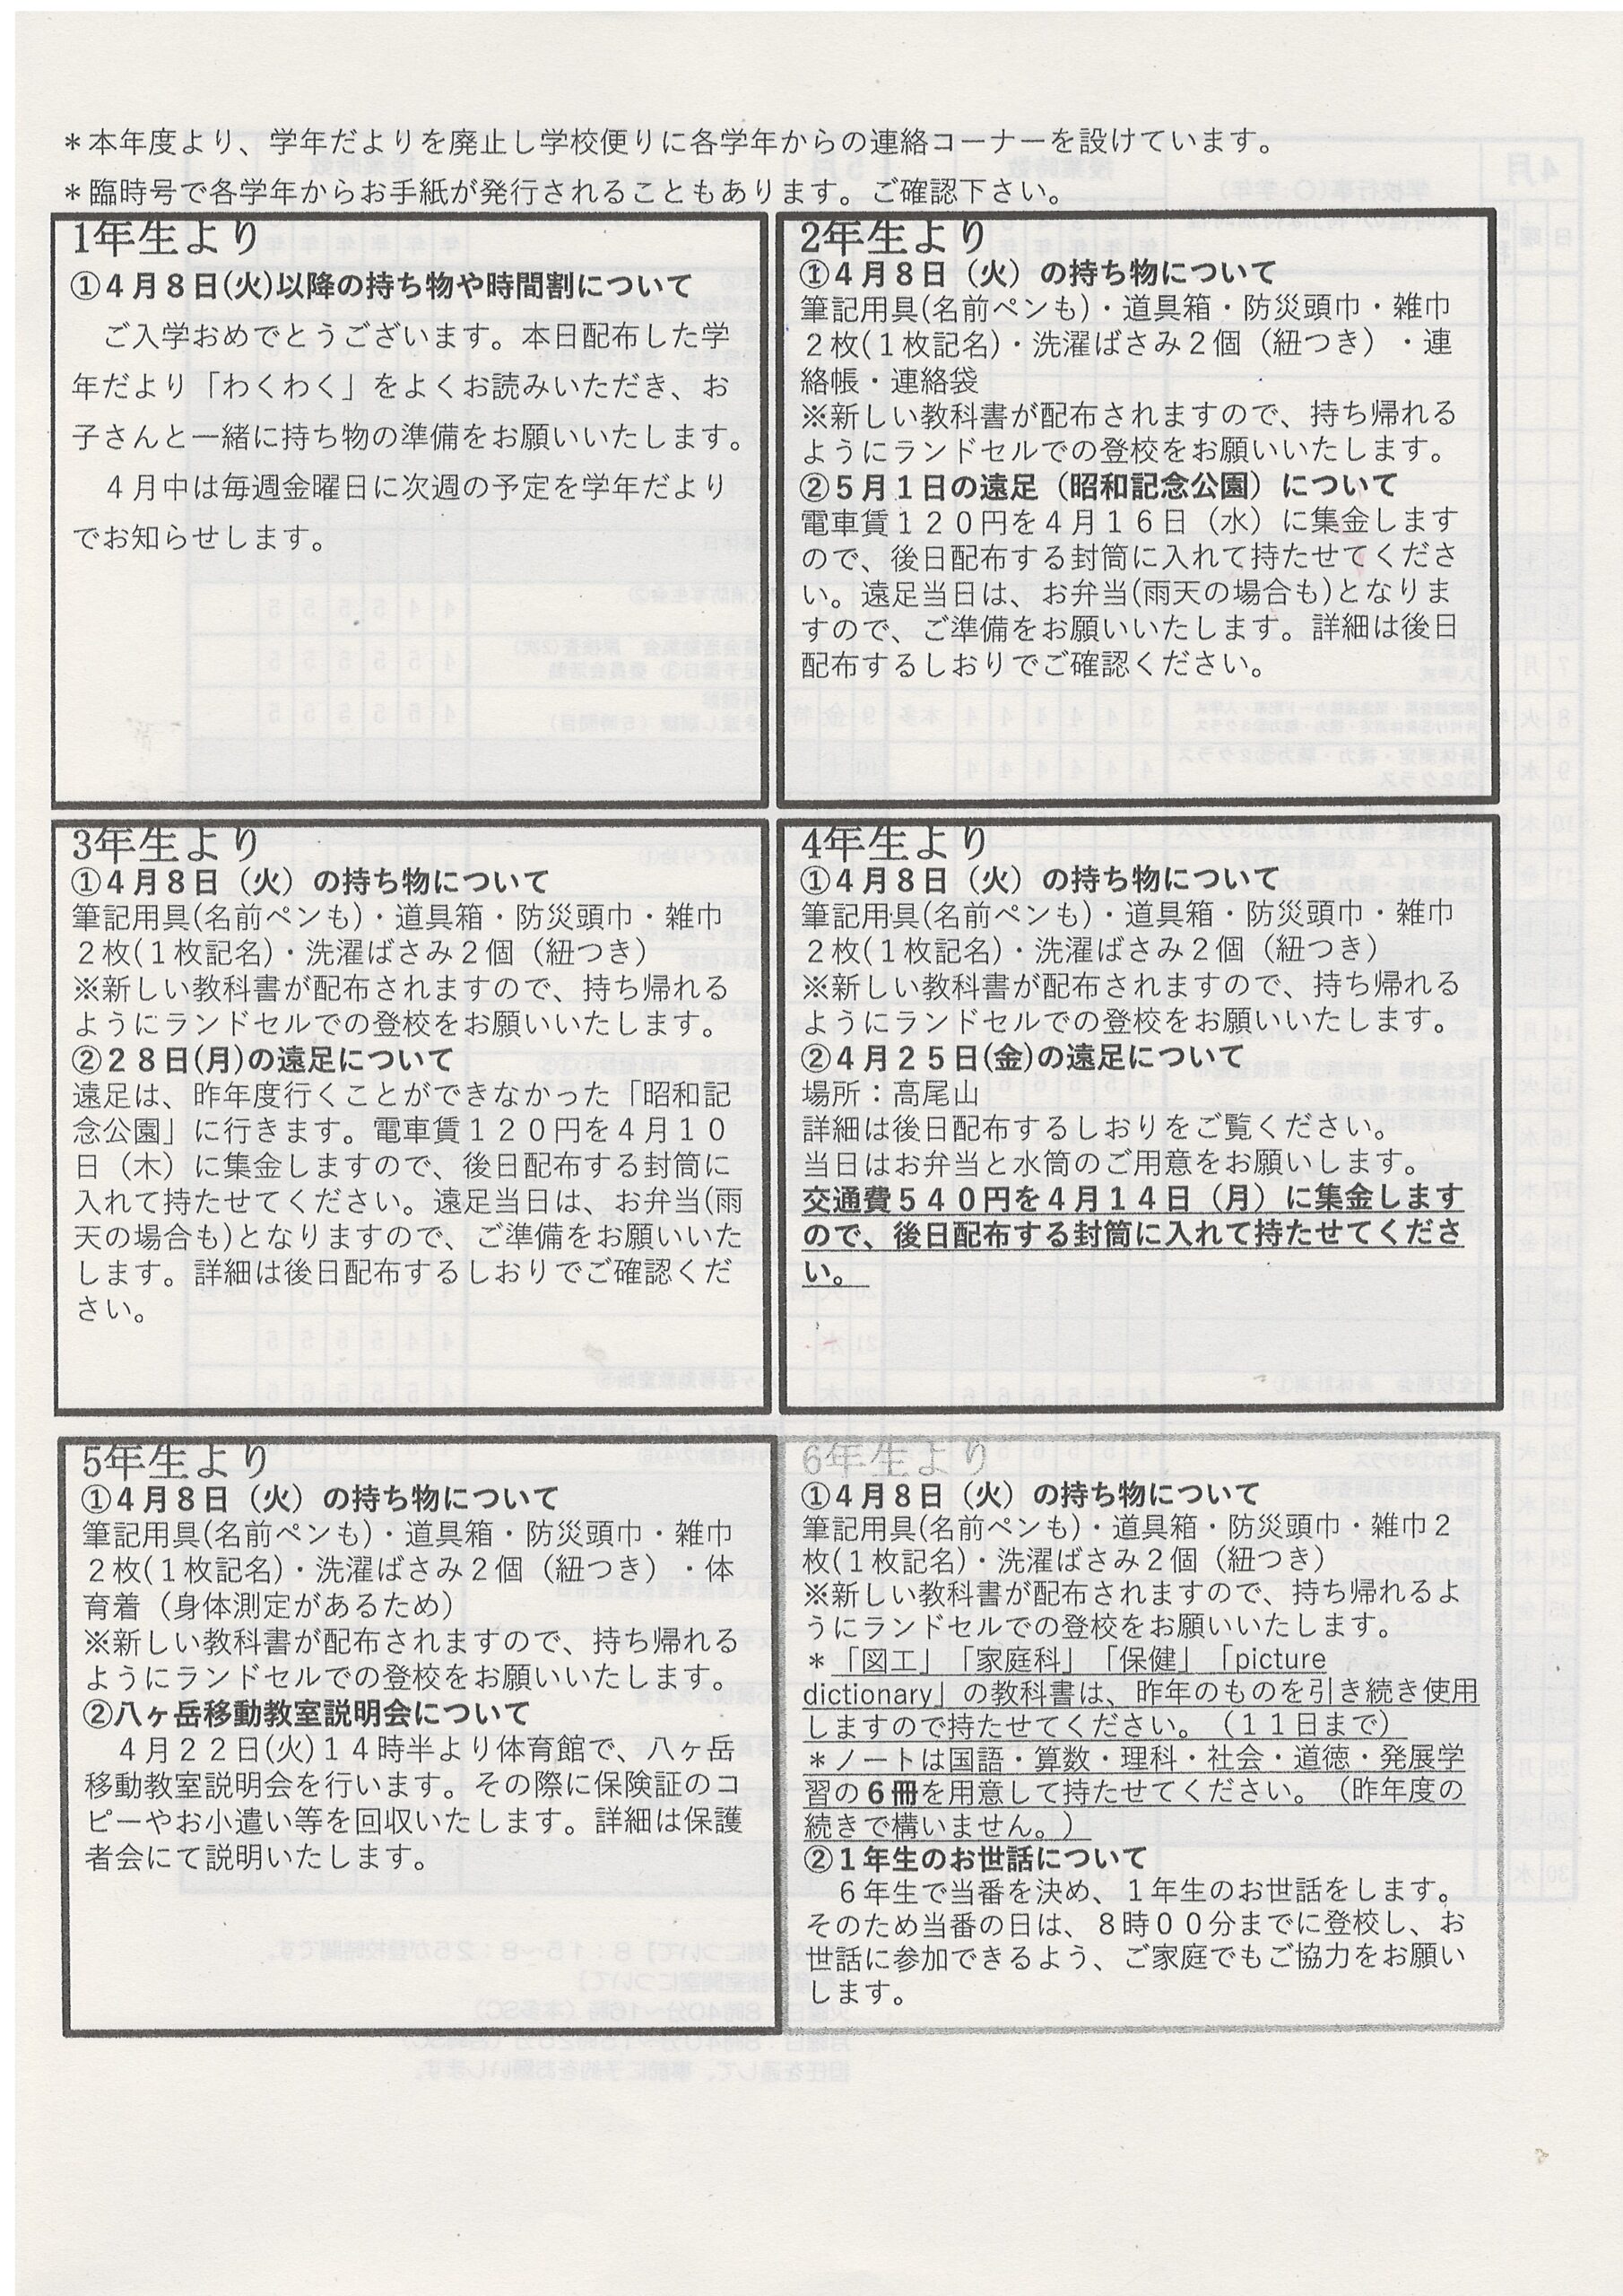 ＊本年度より、学年だよりを廃止し学校便りに各学年からの連絡コーナーを設けています。
＊臨時号で各学年からお手紙が発行されることもあります。ご確認下さい。
1年生より
①４月８日(火)以降の持ち物や時間割について
ご入学おめでとうございます。本日配布した学
年だより「わくわく」をよくお読みいただき、お
子さんと一緒に持ち物の準備をお願いいたします。
４月中は毎週金曜日に次週の予定を学年だより
でお知らせします。
2年生より
①４月８日（火）の持ち物について
筆記用具(名前ペンも)・道具箱・防災頭巾・雑巾
２枚(１枚記名)・洗濯ばさみ２個（紐つき）・連
絡帳・連絡袋
※新しい教科書が配布されますので、持ち帰れる
ようにランドセルでの登校をお願いいたします。
②５月１日の遠足（昭和記念公園）について
電車賃１２０円を４月１６日（水）に集金します
ので、後日配布する封筒に入れて持たせてくださ
い。遠足当日は、お弁当(雨天の場合も)となりま
すので、ご準備をお願いいたします。詳細は後日
配布するしおりでご確認ください。
3年生より
①４月８日（火）の持ち物について
筆記用具(名前ペンも)・道具箱・防災頭巾・雑巾
２枚(１枚記名)・洗濯ばさみ２個（紐つき）
※新しい教科書が配布されますので、持ち帰れる
ようにランドセルでの登校をお願いいたします。
②２８日(月)の遠足について
遠足は、昨年度行くことができなかった「昭和記
念公園」に行きます。電車賃１２０円を４月１０
日（木）に集金しますので、後日配布する封筒に
入れて持たせてください。遠足当日は、お弁当(雨
天の場合も)となりますので、ご準備をお願いいた
します。詳細は後日配布するしおりでご確認くだ
さい。
4年生より
①４月８日（火）の持ち物について
筆記用具(名前ペンも)・道具箱・防災頭巾・雑巾
２枚(１枚記名)・洗濯ばさみ２個（紐つき）
※新しい教科書が配布されますので、持ち帰れる
ようにランドセルでの登校をお願いいたします。
②４月２５日(金)の遠足について
場所：高尾山
詳細は後日配布するしおりをご覧ください。
当日はお弁当と水筒のご用意をお願いします。
交通費５４０円を４月１４日（月）に集金します
ので、後日配布する封筒に入れて持たせてくださ
い。
5年生より
①４月８日（火）の持ち物について
筆記用具(名前ペンも)・道具箱・防災頭巾・雑巾
２枚(１枚記名)・洗濯ばさみ２個（紐つき）・体
育着（身体測定があるため）
※新しい教科書が配布されますので、持ち帰れる
ようにランドセルでの登校をお願いいたします。
②八ヶ岳移動教室説明会について
４月２２日(火)１４時半より体育館で、八ヶ岳
移動教室説明会を行います。その際に保険証のコ
ピーやお小遣い等を回収いたします。詳細は保護
者会にて説明いたします。
6年生より
①４月８日（火）の持ち物について
筆記用具(名前ペンも)・道具箱・防災頭巾・雑巾２
枚(１枚記名)・洗濯ばさみ２個（紐つき）
※新しい教科書が配布されますので、持ち帰れるよ
うにランドセルでの登校をお願いいたします。
＊「図工」「家庭科」「保健」「picture
dictionary」の教科書は、昨年のものを引き続き使用
しますので持たせてください。（１１日まで）
＊ノートは国語・算数・理科・社会・道徳・発展学
習の６冊を用意して持たせてください。（昨年度の
続きで構いません。）
②１年生のお世話について
６年生で当番を決め、１年生のお世話をします。
そのため当番の日は、８時００分までに登校し、お
世話に参加できるよう、ご家庭でもご協力をお願い
します。